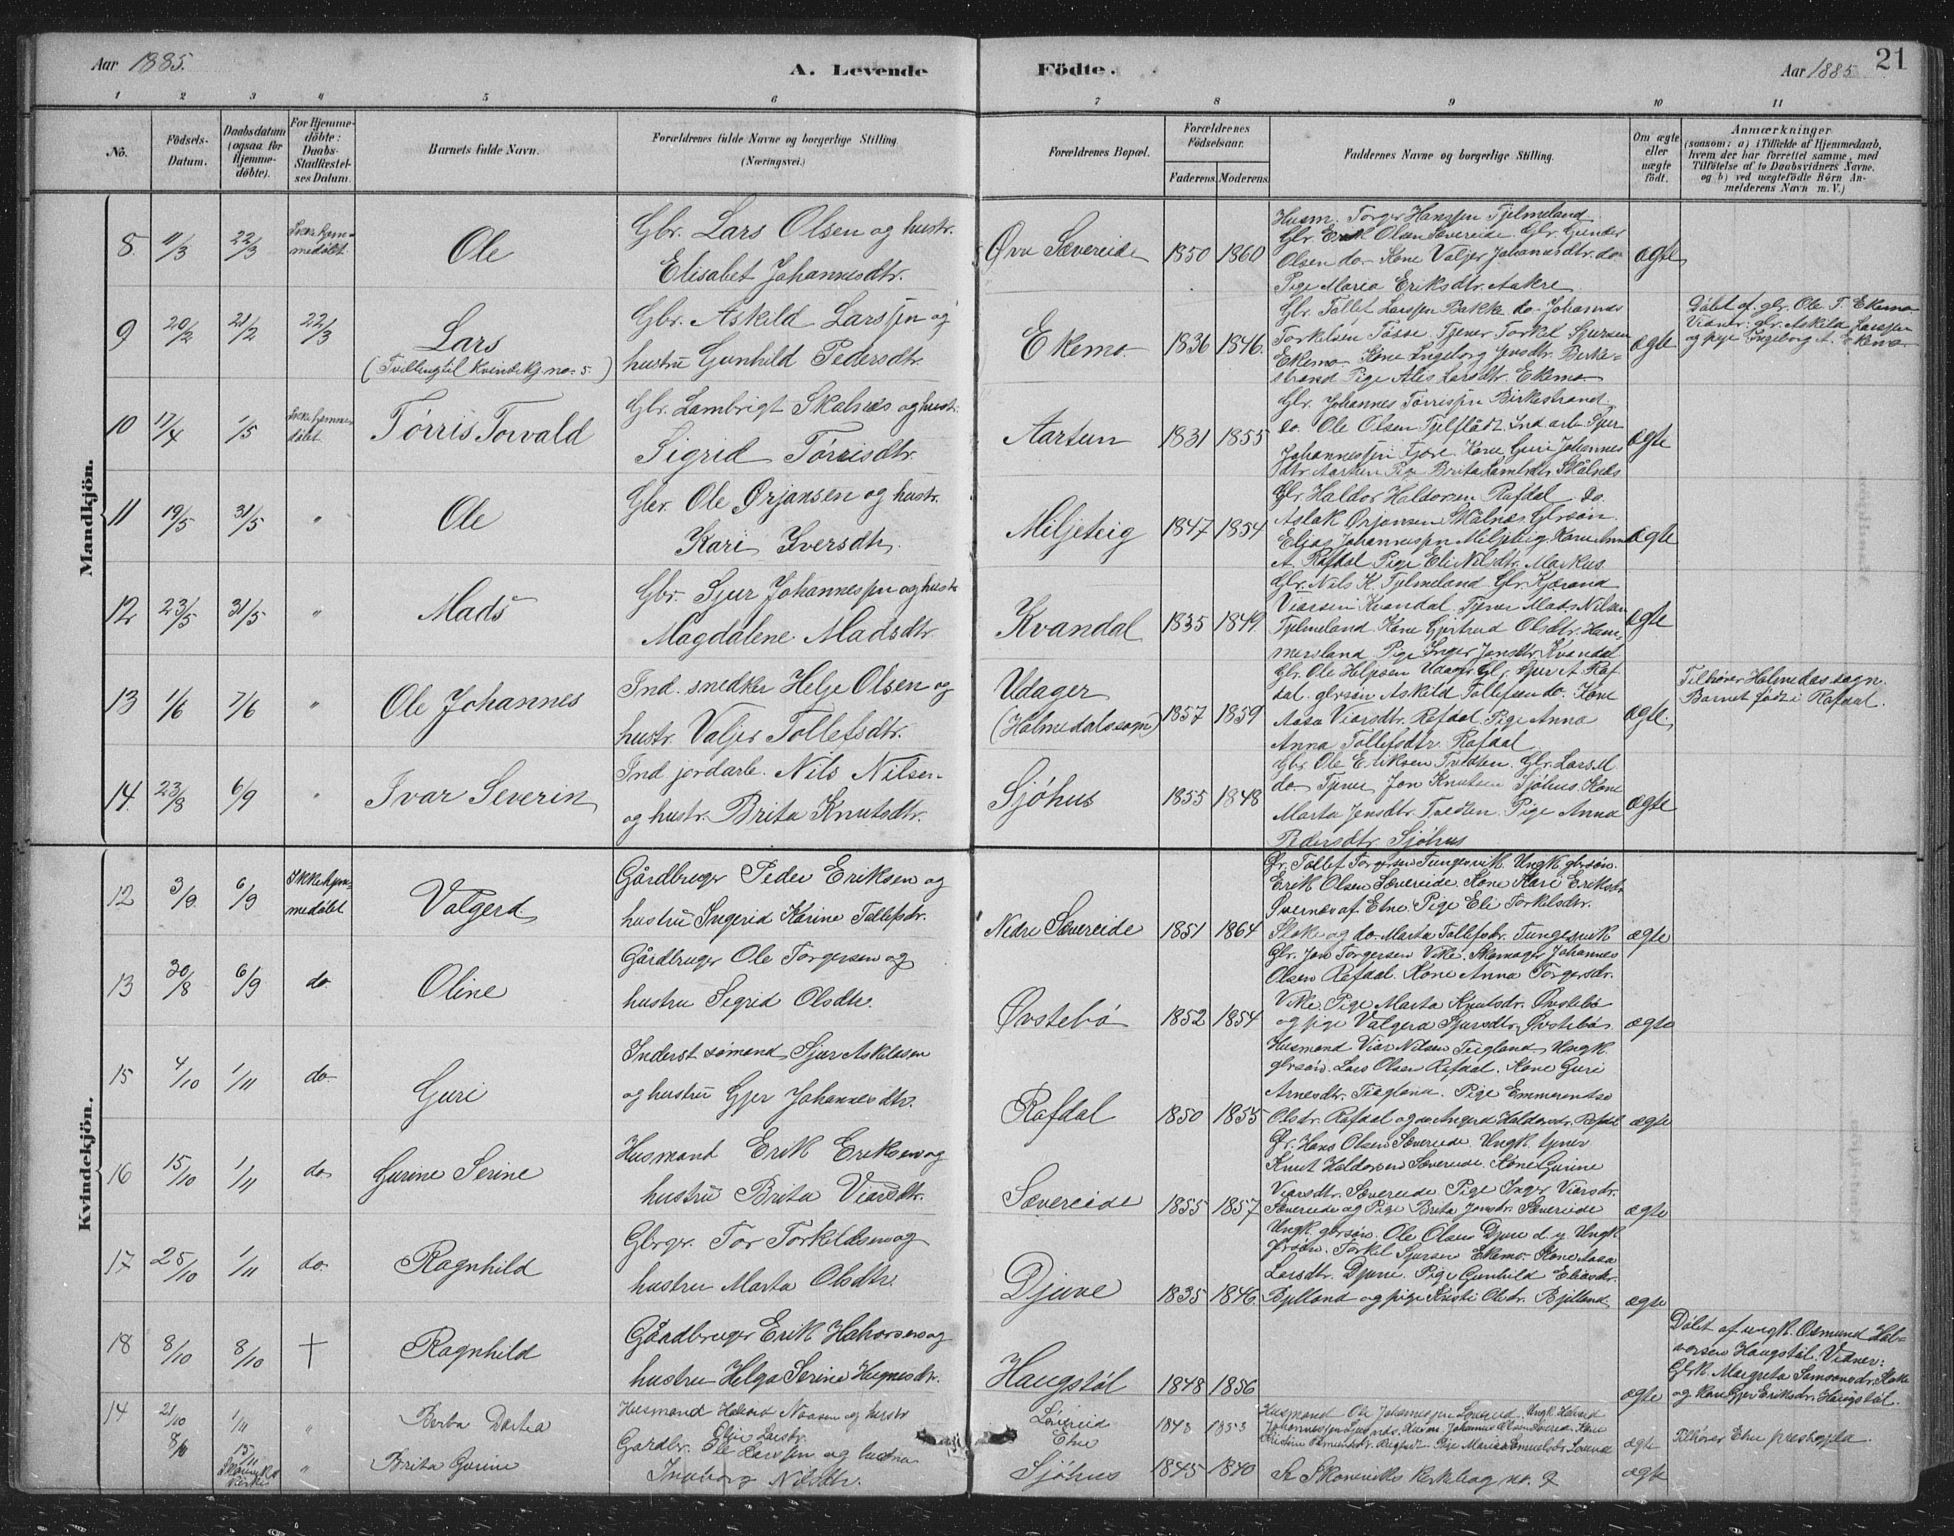 Aar 1885. A. Levende Födte. Aar 1885 21
1 2 3 4 5 6 7 8 9 10 11
No. Födsels-Datum. Daabsdatum (ogsaa for Hjemme-döbte). For Hjemme-döbte: Daabs-Stadfæstel-ses Datum. Barnets fulde Navn. Forældrenes fulde Navne og borgerlige Stilling (Næringsvei.) Forældrenes Bopæl. Forældrenes Födselsaar. Faderens. Moderens. Faddernes Navne og borgerlige Stilling. Om ægte eller uægte födt. Anmærkninger (saasom: a) i Tilfælde af Hjemmedaab, hvem der har forrettet samme, med Tilföielse af to Daabsvidners Navne, og b) ved uægtefödte Börn An-melderens Navn m. V.)
Mandkjön.
8. 11/3 22/3 Ole
Gbr. Lars Olsen og hustr.
Elisabet Johannesdtr.
Øvre Sævereide 1850 1860
Husm. Torger Hanssen Tjelmeland
Gbr. Erik Olsen Sævereide. Gbr. Gunder
Olsen do. Kone Valjer Johannesdtr. do
Pige Maria Eriksdtr. Aakre
ægte
9 20/2 21/2 22/3 Lars
(Tvilling til Kvindekj. no. 5)
Gbr. Askild Larssen og
hustru Gunhild Pedersdtr.
Ekemo. 1836 1846.
Gbr. Tollef Larssen Bakke do. Johannes
Torkelsen Tøsse. Tjener Torkel Sjursen
Ekemo. Kone Ingeborg Jensdtr. Birke-
strand Pige Alis Larsdtr. Ekemo
ægte
Døbt af gbr. Ole T. Ekemo
Vidner: gbr. Askild Larssen
og pige Ingeborg A. Ekemo
10 17/4 1/5 Tørris Torvald
Gbr. Lambrigt Skalnes og hustr.
Sigrid Tørrisdtr.
Aartun 1831 1855
Gbr. Johannes Tørrissen Birkestrand
do. Ole Olsen Tjelflådt. Ind arb. Sjur
Johannessen Fjære. Kone Guri Johannes
dtr. Aartun Pige Brita Lambrdtr. Skålnes
ægte
11 19/5 31/5 " Ole
Gbr. Ole Ørjansen og hustr.
Kari Iversdtr.
Miljeteig 1847 1854
Gbr. Haldor Haldorsen Rafdal do.
Aslak Ørjansen Skålnes. Gbrsøn
Elias Johannessen Miljeteig. Kone Anna
A. Rafdal Pige Eli Nilsdtr. Markus.
ægte
12 23/5 31/5 " Mads
Gbr. Sjur Johannessen og hustr
Magdalene Madsdtr
Kvandal 1835 1849
Gbr. Nils K. Tjelmeland Gbr. Kjærand
Viarsen Kvandal. Tjener Mads Nilsen
Tjelmeland. Kone Gjertrud Olsdtr. Ham-
mersland. Pige Inger Jensdtr. Kvandal
ægte
13 1/6 7/6 " Ole Johannes
Ind. snedker Helje Olsen og
hustr. Valjer Tollefsdtr.
Udager
(Holmedals sogn) 1857 1859
Gbr. Ole Heljesen Udager Gbr. Sjur A. Raf-
dal. gbrsøn Askild Tollefsen do. Kone
Aasa Viarsdtr. Rafdal. Pige Anna
Anna Tollefsdtr. Rafdal
ægte.
Tilhører Holmedas sogn.
Barnet født i Rafdal.
14. 23/8 6/9 " Ivar Severin
Ind jordarb. Nils Nilsen
og hustr. Brita Knutsdtr.
Sjøhus 1855 1848
Gbr. Ole Eriksen Tvedten. Gbr. Lars M
do Tjener Jon Knutsen Sjøhus. Kone
Marta Jensdtr. Tvedten. Pige Anna
Pedersdtr. Sjøhus
ægte
Kvindekjön.
12 3/9 6/9 Ikke hjem-
medøbt Valgerd
Gårdbruger Peder Eriksen og
hustru Ingerid Karine Tollefsdr.
Nedre Sævereide 1851 1864
Gr. Tollef Torgersen Tungesvik. Ungk. gbrsøn.
Erik Olsen Sævereide. Kone Kari Eriksdr.
Svernes af Etne. Pige Eli Torkilsdr.
Støle og do. Marta Tollefsdr. Tungesvik
ægte
13 30/8 6/9 do Oline
Gårdbruger Ole Torgersen og
hustru Sigrid Olsdtr.
Øvstebø 1852 1854
Gbr. Jon Torgersen Vike. Skomager Johannes
Olsen Rafdal. Kone Anna Torgersdr.
Vike. Pige Marta Knutsdr. Øvstebø
og pige Valgerd Sjursdtr. Øvstebø
ægte
15 4/10 1/11 do Guri
Inderst sømand Sjur Askildsen
og hustru Gjer Johannesdtr.
Rafdal 1850 1855
Husmand Viar Nilsen Teigland. Ungk.
gbrsøn. Lars Olsen Rafdal. Kone Guri
Arnesdtr. Teigland. Pige Emmerentse
Olsdr. Rafdal og do Ingerd Haldorsdr. Rafdal
ægte
16 15/10 1/11 do Gurine Serine
Husmand Erik Eriksen og
hustru Brita Viarsdtr.
Sævereide 1855 1857
Gr. Hans Olsen Sævereide. Ungk. tjener
Knut Haldorsen Sævereide. Kone Gurine
Viarsdtr. Sævereide. Pige Inger Viarsdr.
Sævereide og Pige Brita Jonsdr. Sævereide
ægte
17 25/10 1/11 do. Ragnhild
Gbrgr. Tor Torkildsen og
hustru Marta Olsdtr.
Djuve 1835 1846
Ungk. gbrsøn. Ole Olsen Djuve d. y. Ungk
Torkel Sjursen Ekemo. Kone Aasa
Larsdtr. Djuve. Pige Gunhild Eliasdr.
Bjelland og pige Kristi Olsdr. Bjelland
ægte
18 8/10 8/10 † Ragnhild
Gårdbruger Erik Halvorsen og
hustru Helga Serine Hognesdr.
Haugstøl 1848 1856
ægte
Døbt af ungk. Osmund Hal-
vorsen Haugstøl. Vidner:
Margreta Samsonsdr.
og kone Gjer Eriksdr. Haugstøl.
14 21/10 1/11 " Berta Dortea
Husmand Halvord Noasen og hustr
Eli Larsdr.
Løvereid
Etne 1843 1853
Husmand Ole Johannessen Løvereid. Ungk. Halvord
ægte Tilhører Etne prestegjeld.
8/11 15/11 Skånevik
kirke " Brita Gurine
Gardbr. Ole Larssen og kvinde
Ingeborg Nilsdtr.
Sjøhus 1845 1840
Se Skoneviks kirkebog no. 2
ægte